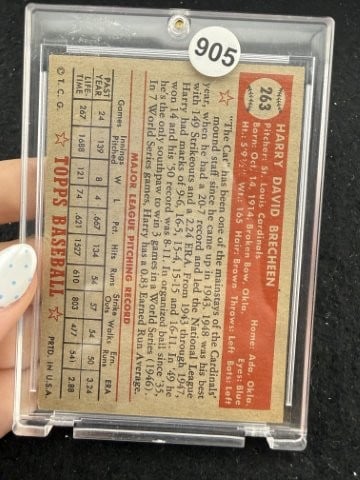 905
263
HARRY DAVID BRECHEEN
Pitcher: St. Louis Cardinals Home: Ada, Okla.
Born: Oct. 14, 1914, Broken Bow, Okla.
Ht.: 5'9½" Wt.: 165 Hair: Brown Eyes: Blue
Throws: Left Bats: Left
"The Cat" has been one of the mainstays of the Cardinals'
mound staff since he came up in 1943. 1948 was his best
year, when he had a 20-7 record and led the National League
with 149 Strikeouts and a 2.24 ERA. From 1943 through 1947,
Harry had marks of 9-6, 16-5, 15-4, 15-15 and 16-11. In '49 he
won 14 and his 1950 record was 8-11. In organized ball since '35,
he's the only southpaw to win 3 games in a World Series (1946).
In 7 World Series games, Harry has a 0.83 Earned Run Average.
MAJOR LEAGUE PITCHING RECORD
Games Innings Pitched W L Pct. Hits Runs Strike Outs Walks Ern. Runs ERA
PAST YEAR 24 139 8 4 .667 134 54 57 54 50 3.24
LIFE-TIME 267 1688 121 77 .611 1527 610 803 477 541 2.88
© T.C.G. TOPPS BASEBALL PRTD. IN U.S.A.